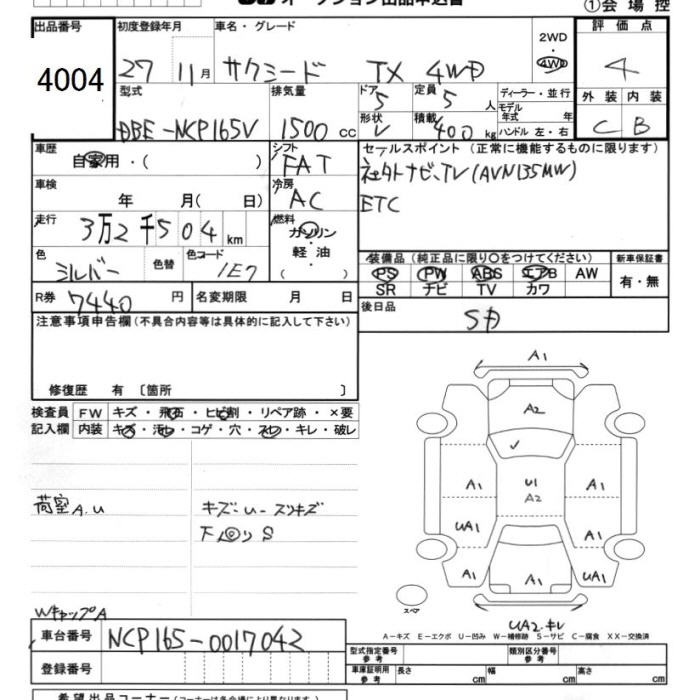 オークション出品申込書 ①会場控
出品番号 初度登録年月 車名・グレード 2WD 4WD 評価点
4004 27 11月 サクシード TX 4WD 4
型式 排気量 ドア 5 定員 5 人 ディーラー・並行 外装 内装
DBE-NCP165V 1500 cc 形状 V 積載 400 kg モデル年式 年 ハンドル 左・右 C B
車歴 自家用・( ) シフト FAT セールスポイント (正常に機能するものに限ります)
車検 年 月( 日) 冷房 AC 社外ナビ、TV(AVN135MW)
ETC
走行 3万2千504 km 燃料 ガソリン
軽油
( )
色 シルバー 色替 色コード 1E7 装備品(純正品に限り○をつけてください) 新車保証書
PS PW ABS エアB AW 有・無
SR ナビ TV カワ
R券 7440 円 名変期限 月 日 後日品
注意事項申告欄(不具合内容等は具体的に記入して下さい)
修復歴 有 〔箇所 〕
検査員 FW キズ・飛石・ヒビ割・リペア跡・×要
記入欄 内装 キズ・汚レ・コゲ・穴・スレ・キレ・破レ
荷室A.U キズ-U-スリキズ
下回りS
WキャップA
A1
A2
U1
A2
A1 A1
UA1 A1
A1 A1 UA1
スペア
UA2.キレ
A-キズ E-エクボ U-凹み W-補修跡 S-サビ C-腐食 XX-交換済
車台番号 NCP165-0017042 型式指定番号 参考 類別区分番号 参考
登録番号 車庫証明用 参考 長さ cm 幅 cm 高さ cm
希望出品コーナー